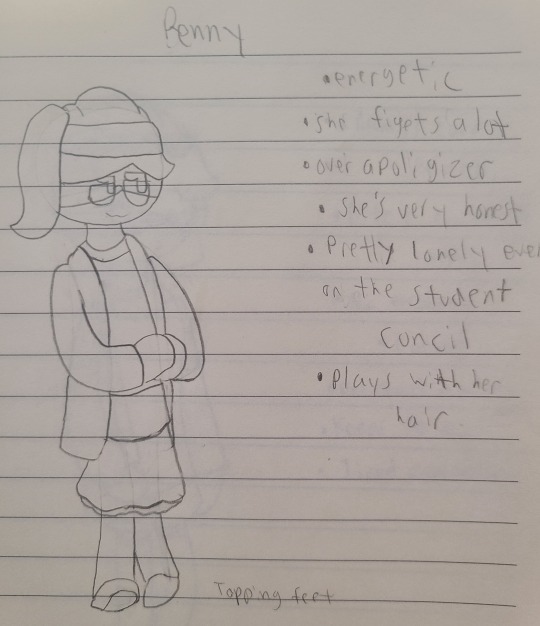 Benny
• energetic
• she figets a lot
• over apoligizer
• she's very honest
• Pretty lonely even
on the student
Concil
• Plays with her
hair
Topping feet